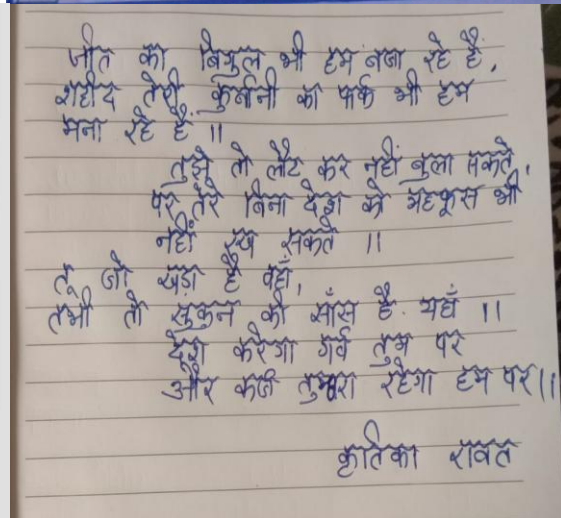 जीत का बिगुल भी हम बजा रहे हैं,
शहीद तेरी कुर्बानी का पर्क भी हम
मना रहे हैं ॥
तुझे तो लौट कर नहीं बुला सकते,
पर तेरे बिना देश को महफूस भी
नहीं रख सकते ॥
तू जो खड़ा है वहाँ,
तभी तो सुकुन की साँस है यहाँ ॥
देश करेगा गर्व तुम पर
और कर्ज तुम्हारा रहेगा हम पर ॥
कृतिका रावत